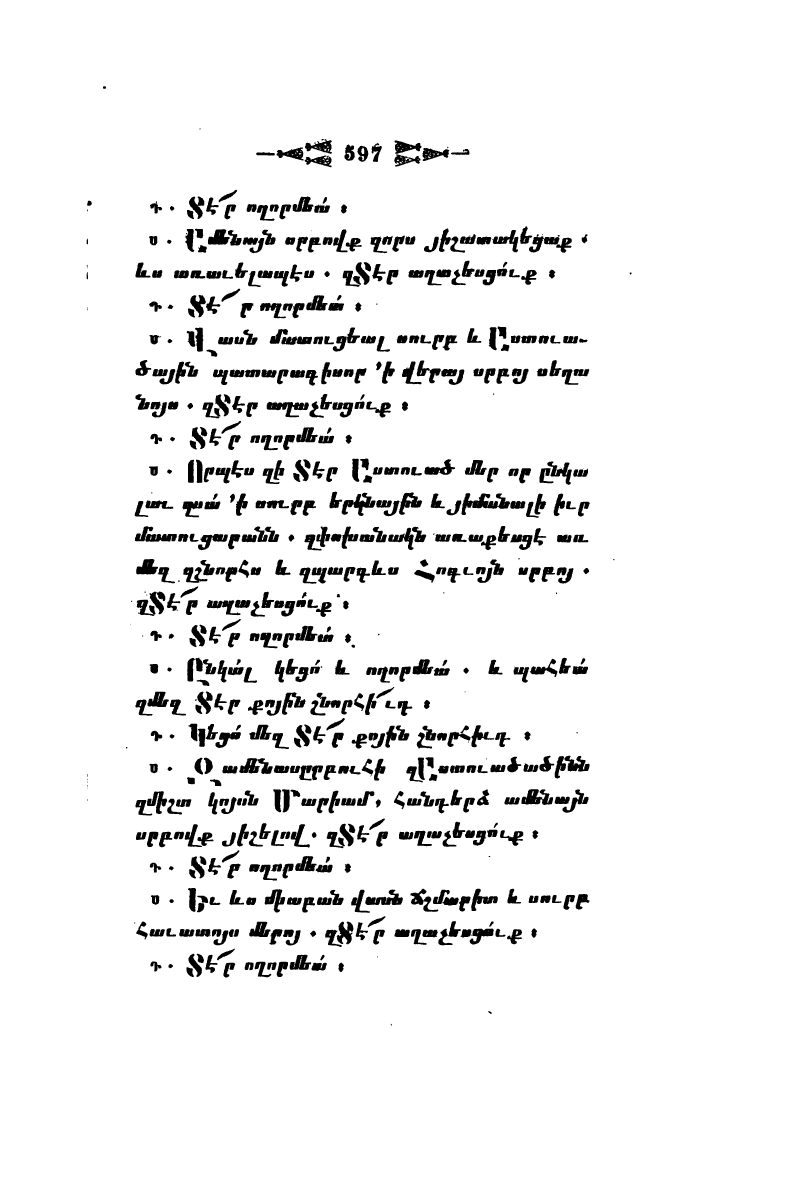 597
դ. Տէ՜ր ողորմեա՛ ։
ս. Ամենայն սրբովք զորս յիշատակեցաք ·
ևս առաւելապէս · զՏէր աղաչեսցո՛ւք ։
դ. Տէ՜ր ողորմեա՛ ։
ս. Վասն մատուցեալ սուրբ և Աստուա֊
ծային պատարագիսոր ՚ի վերայ սրբոյ սեղա
նոյս · զՏէր աղաչեսցո՛ւք ։
դ. Տէ՜ր ողորմեա՛ ։
ս. Որպէս զի Տէր Աստուած մեր որ ընկա
լաւ զսա՛ ՚ի սուրբ երկնային և յիմանալի իւր
մատուցարանն · զփոխանակն առաքեսցէ առ
մեզ զշնորհս և զպարգևս Հոգւոյն սրբոյ ·
զՏէ՜ր աղաչեսցո՛ւք ։
դ. Տէ՜ր ողորմեա՛ ։
ս. Ընկա՛լ կեցո՛ և ողորմեա՛ · և պահեա՛
զմեզ Տէր քոյին շնորհի՜ւդ ։
դ. Կեցո՛ մեզ Տէ՜ր քոյին շնորհիւդ ։
ս. Զամենասըրբուհի զԱստուածածինն
զմիշտ կոյսն Մարիամ, հանդերձ ամենայն
սրբովք յիշելով · զՏէ՜ր աղաչեսցո՛ւք ։
դ. Տէ՜ր ողորմեա՛ ։
ս. Եւ ևս միաբան վասն ճշմարիտ և սուրբ
հաւատոյս մերոյ · զՏէ՜ր աղաչեսցո՛ւք ։
դ. Տէ՜ր ողորմեա՛ ։